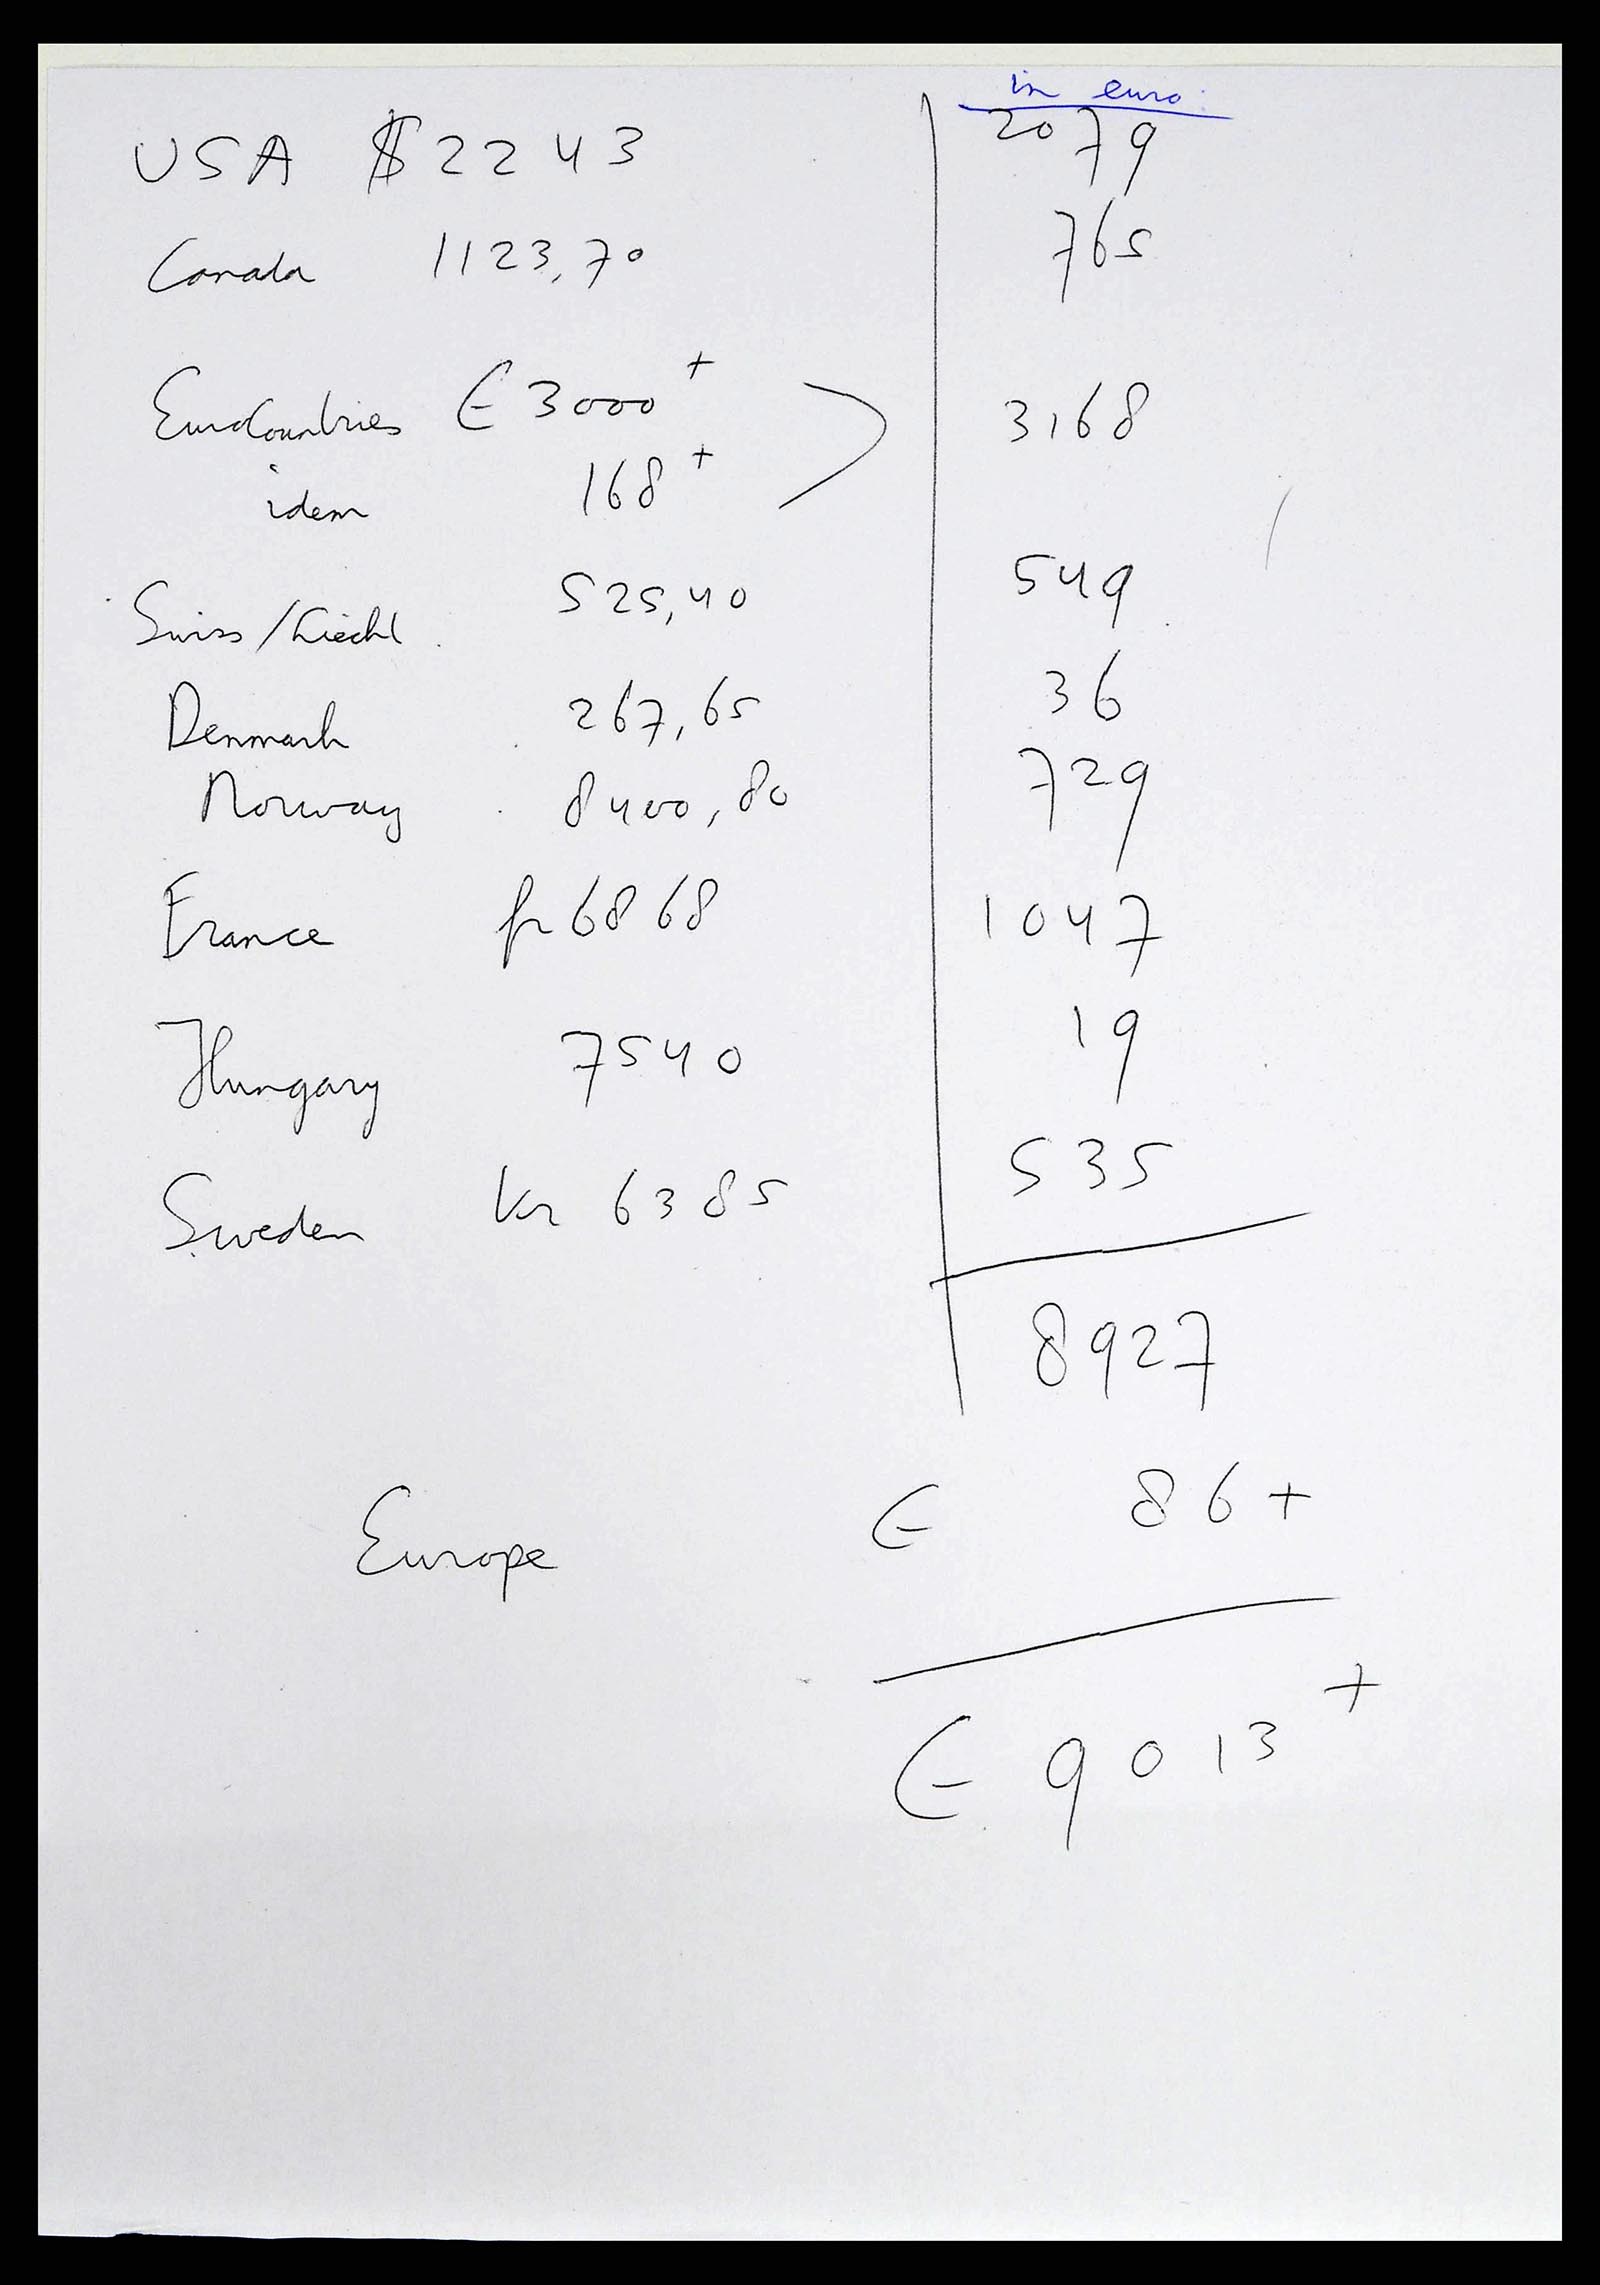 in euro:
USA $2243 2079
Canada 1123,70 765
EuroCountries € 3000+ 3168
idem 168+
Swiss/Liechl. 525,40 549
Denmark 267,65 36
Norway 8400,80 729
France fr 6868 1047
Hungary 7540 19
Sweden kr 6385 535
8927
Europe € 86+
€ 9013+